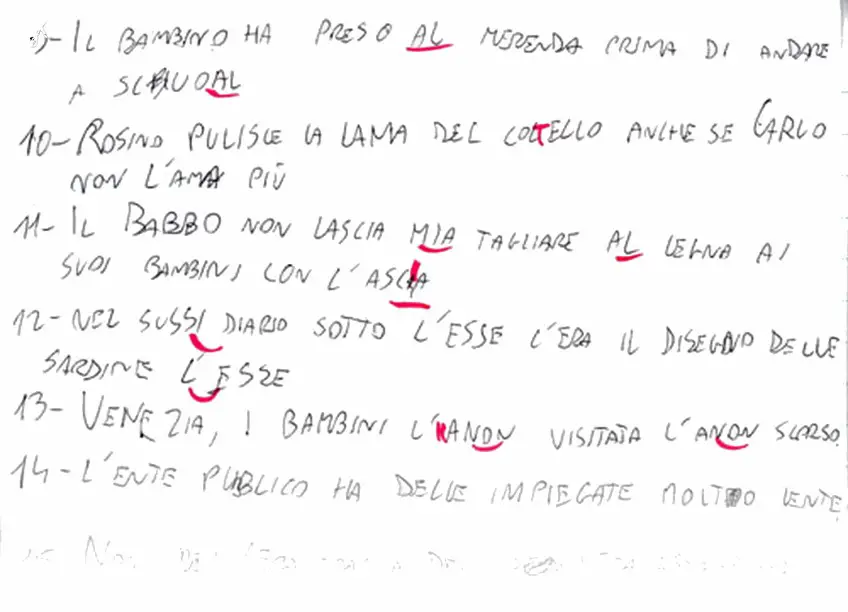 9- IL BAMBINO HA PRESO AL MERENDA PRIMA DI ANDARE
A SCUOAL
10- ROSINO PULISCE LA LAMA DEL COLTELLO ANCHE SE CARLO
NON L'AMA PIÙ
11- IL BABBO NON LASCIA MIA TAGLIARE AL LEGNA AI
SUOI BAMBINI CON L'ASCIA
12- NEL SUSSI DIARIO SOTTO L'ESSE C'ERA IL DISEGNO DELLE
SARDINE L'ESSE
13- VENEZIA, I BAMBINI L'HANON VISITATA L'ANON SCORSO
14- L'ENTE PUBLICO HA DELLE IMPIEGATE MOLTO LENTE
15- NON